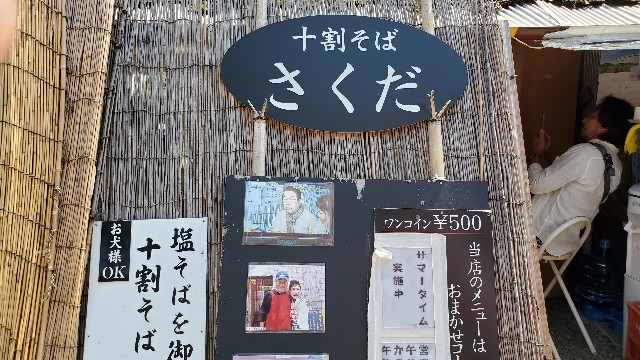 十割そば
さくだ
お犬様
OK
塩そばを御
十割そば
ワンコイン¥500
当店のメニューは
おまかせコ
サマータイム
実施中